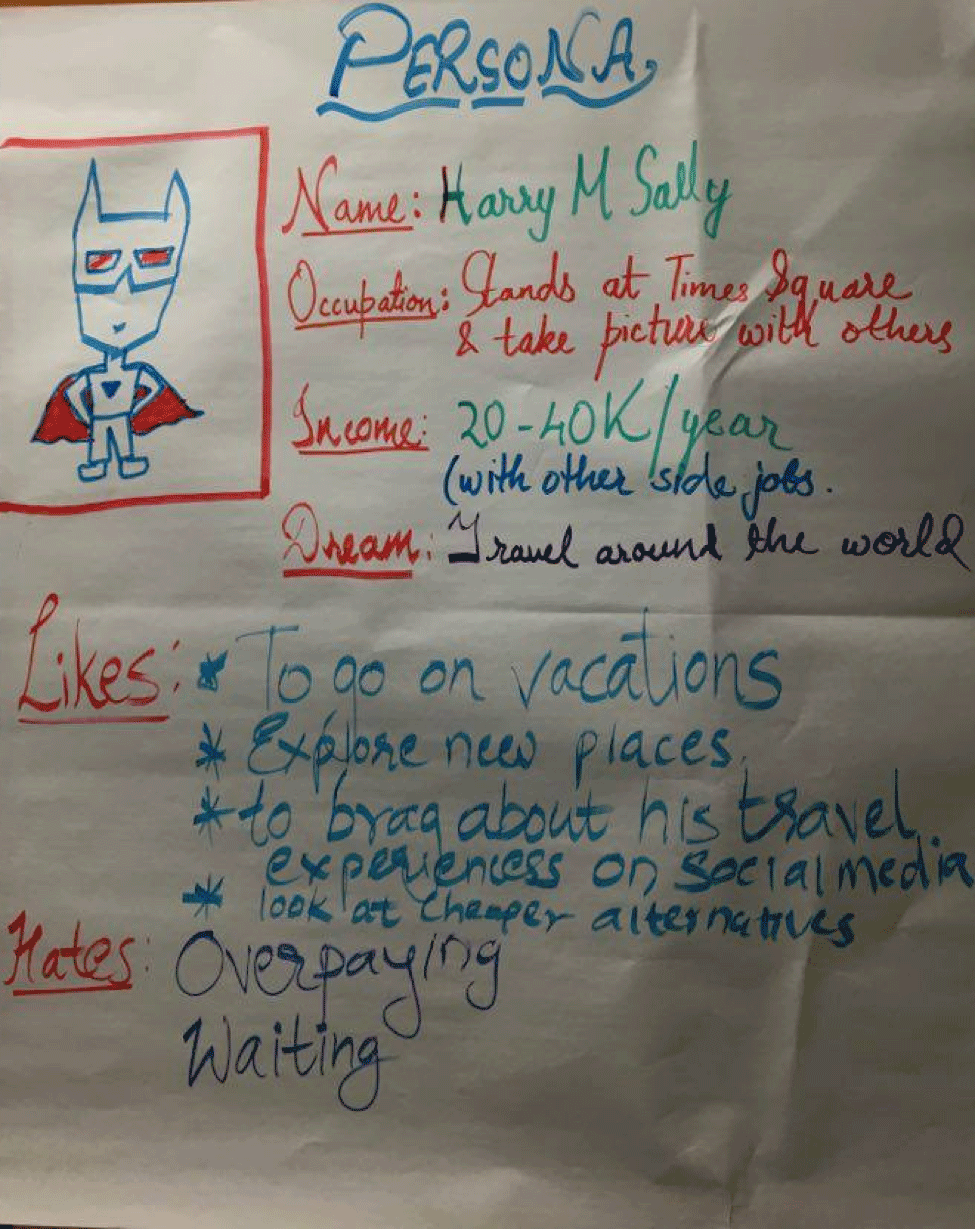 PERSONA
Name: Harry M Sally
Occupation: Stands at Times Square
& take picture with others
Income: 20-40K/year
(with other side jobs.
Dream: Travel around the world
Likes: * To go on vacations
* Explore new places.
* to brag about his travel
experiencess on Social media
* look at cheaper alternatives
Hates: Overpaying
Waiting